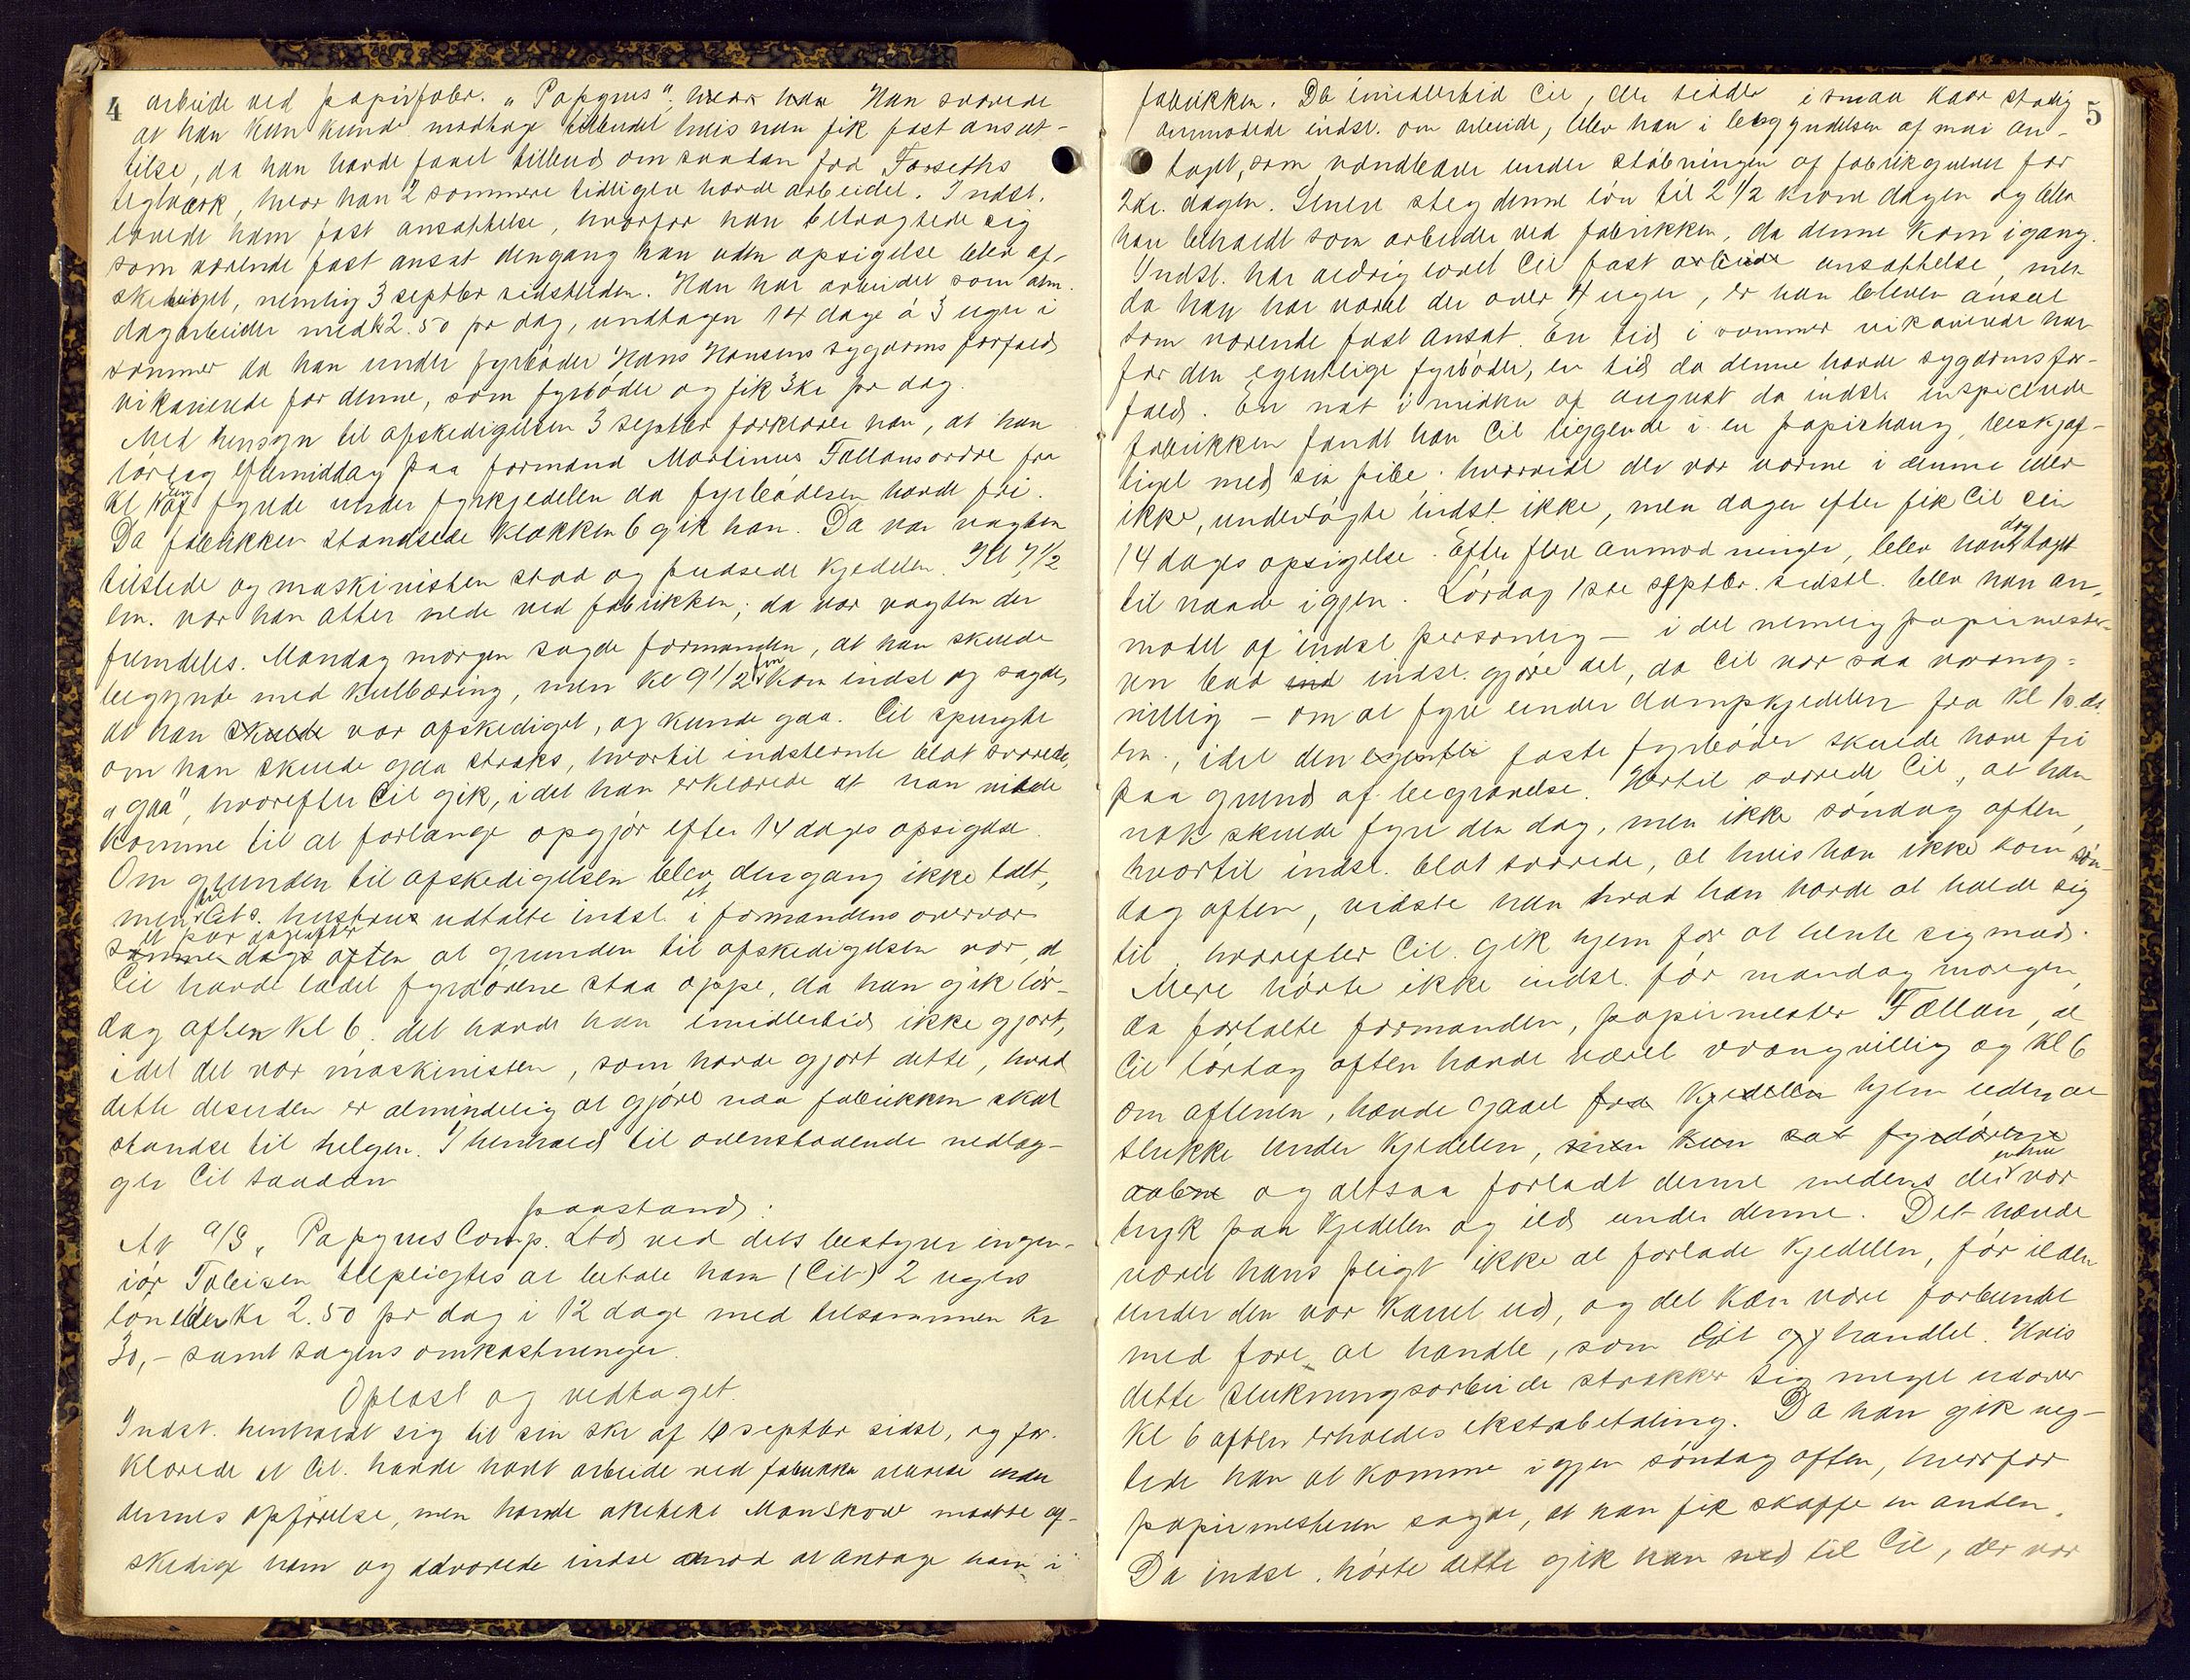 4
arbeide ved papirfabr. "Papyrus", hvor han Han svarede
at han kun kunde modtage tilbudet hvis han fik fast ansæt-
telse, da han havde faaet tilbud om saadan fra Forseths
teglværk, hvor han 2 sommere tidligere havde arbeidet. Indst.
lovede ham fast ansættelse, hvorfor han betragtede sig
som værende fast ansat dengang han uden opsigelse blev af-
skediget, nemlig 3 septbr sidstleden. Han har arbeidet som alm.
dagarbeider med kr 2.50 pr dag, undtagen 14 dage á 3 uger i
sommer da han under fyrbøder Hans Hansens sygdoms forfald
vikarierede for denne, som fyrbøder og fik 3 kr pr dag.
Med hensyn til afskedigelsen 3 septbr forklarer han, at han
lørdag eftermiddag paa formand Martinus Fallans ordre fra
kl 10 af fyrede under fyrkjedelen da fyrbøderen havde fri.
Da fabrikken standsede klokken 6 gik han. Da var vagten
tilstede og maskinisten stod og pudsede kjedelen. Kl 7 1/2
em. var han atter nede ved fabrikken; da var vagten der
fremdeles. Mandag morgen sagde formanden, at han skulde
begynde med kulbæring, men kl 9 1/2 fm kom indst og sagde,
at han skulde var afskediget, og kunde gaa. Cit spurgte
om han skulde gaa straks, hvortil indstevnte blot svarede,
"gaa", hvorefter Cit gik, idet han erklærede at han vilde
komme til at forlange opgjør efter 14 dages opsigelse.
Om grunden til afskedigelsen blev dengang ikke talt,
men til Cits. hustrus udtalte indst. i formandens overvær
et par dage efter
samme dags aften at grunden til afskedigelsen var, at
Cit havde ladet fyrdørene staa oppe, da han gik lør-
dag aften kl 6. det havde han imidlertid ikke gjort,
idet det var maskinisten, som havde gjort dette, hvad
dette desuden er almindelig at gjøre naar fabrikken skal
standse til helgen. I henhold til ovenstaaende nedlæg-
ger Cit saadan
paastand:
At A/S "Papyrus Comp. Ltd ved dets bestyrer ingen-
iør Tobisen tilpligtes at betale ham (Cit) 2 ugers
løn eller kr 2.50 pr dag i 12 dage med tilsammen kr
30,- samt sagens omkostninger.
Oplæst og vedtaget.
Indst. henholdt sig til sin skr af septbr sidst, og for-
klarede at Cit. havde havt arbeide ved fabrikken allerede under
dennes opførelse, men havde arkitekt Manskow maatte af-
skedige ham og advarede indst imod at antage ham i
5
fabrikken. Da imidlertid Cit, der sidder i smaa kaar stadig
anmodede indst. om arbeide, blev han i begyndelsen af mai an-
taget, som vandbærer under støbningen af fabrikgulvet for
2 kr. dagen. Senere steg denne løn til 2 1/2 krone dagen og blev
han beholdt som arbeider ved fabrikken, da denne kom igang.
Indst. har aldrig lovet Cit fast arbeide ansættelse, men
da han har været der over 4 uger, er han bleven anseet
som værende fast ansat. En tid i sommer vikarierede han
for den egentlige fyrbøder, en tid da denne havde sygdomsfor-
fald. En nat i midten af august da indst. inspicerede
fabrikken fandt han Cit liggende i en papirhaug, beskjæf-
tiget med sin pibe. hvorvidt der var varme i denne eller
ikke, undersøgte indst. ikke, men dagen efter fik Cit sin
14 dages opsigelse. Efter flere anmodninger, blev han dog taget
til naade igjen. Lørdag 1ste septbr. sidstl. blev han an-
modet af indst personlig - idet nemlig papirmester-
en bad ind indst. gjøre det, da Cit var saa vrang-
villig - om at fyre under dampkjedelen fra kl 10. ds.
em., idet den egentli faste fyrbøder skulde have fri
paa grund af begravelse. Hertil svarede Cit, at han
nok skulde fyre den dag, men ikke søndag aften,
hvortil indst. blot svarede, at hvis han ikke kom søn-
dag aften, vidste han hvad han havde at holde sig
til, hvorefter Cit gik hjem for at hente sig mad.
Mere hørte ikke indst. før mandag morgen,
da fortalte formanden, papirmester Fællan, at
Cit lørdag aften havde været vrangvillig og kl 6
om aftenen, havde gaaet fra kjedelen hjem uden at
slukke under kjedelen, men kun sat fyrdørene
aabne og altsaa forladt denne medens der endnu var
tryk paa kjedelen og ild under denne. Det havde
været hans pligt ikke at forlade kjedelen, før ilden
under den var karet ud, og det kan være forbundet
med fare at handle, som Cit og handlet. Hvis
dette slukningsarbeide strækker sig meget udover
kl 6 aften erholdes ekstrabetaling. Da han gik næg-
tede han at komme igjen søndag aften, hvorfor
papirmesteren sagde, at han fik skaffe en anden.
Da indst. hørte dette gik han ned til Cit, der var